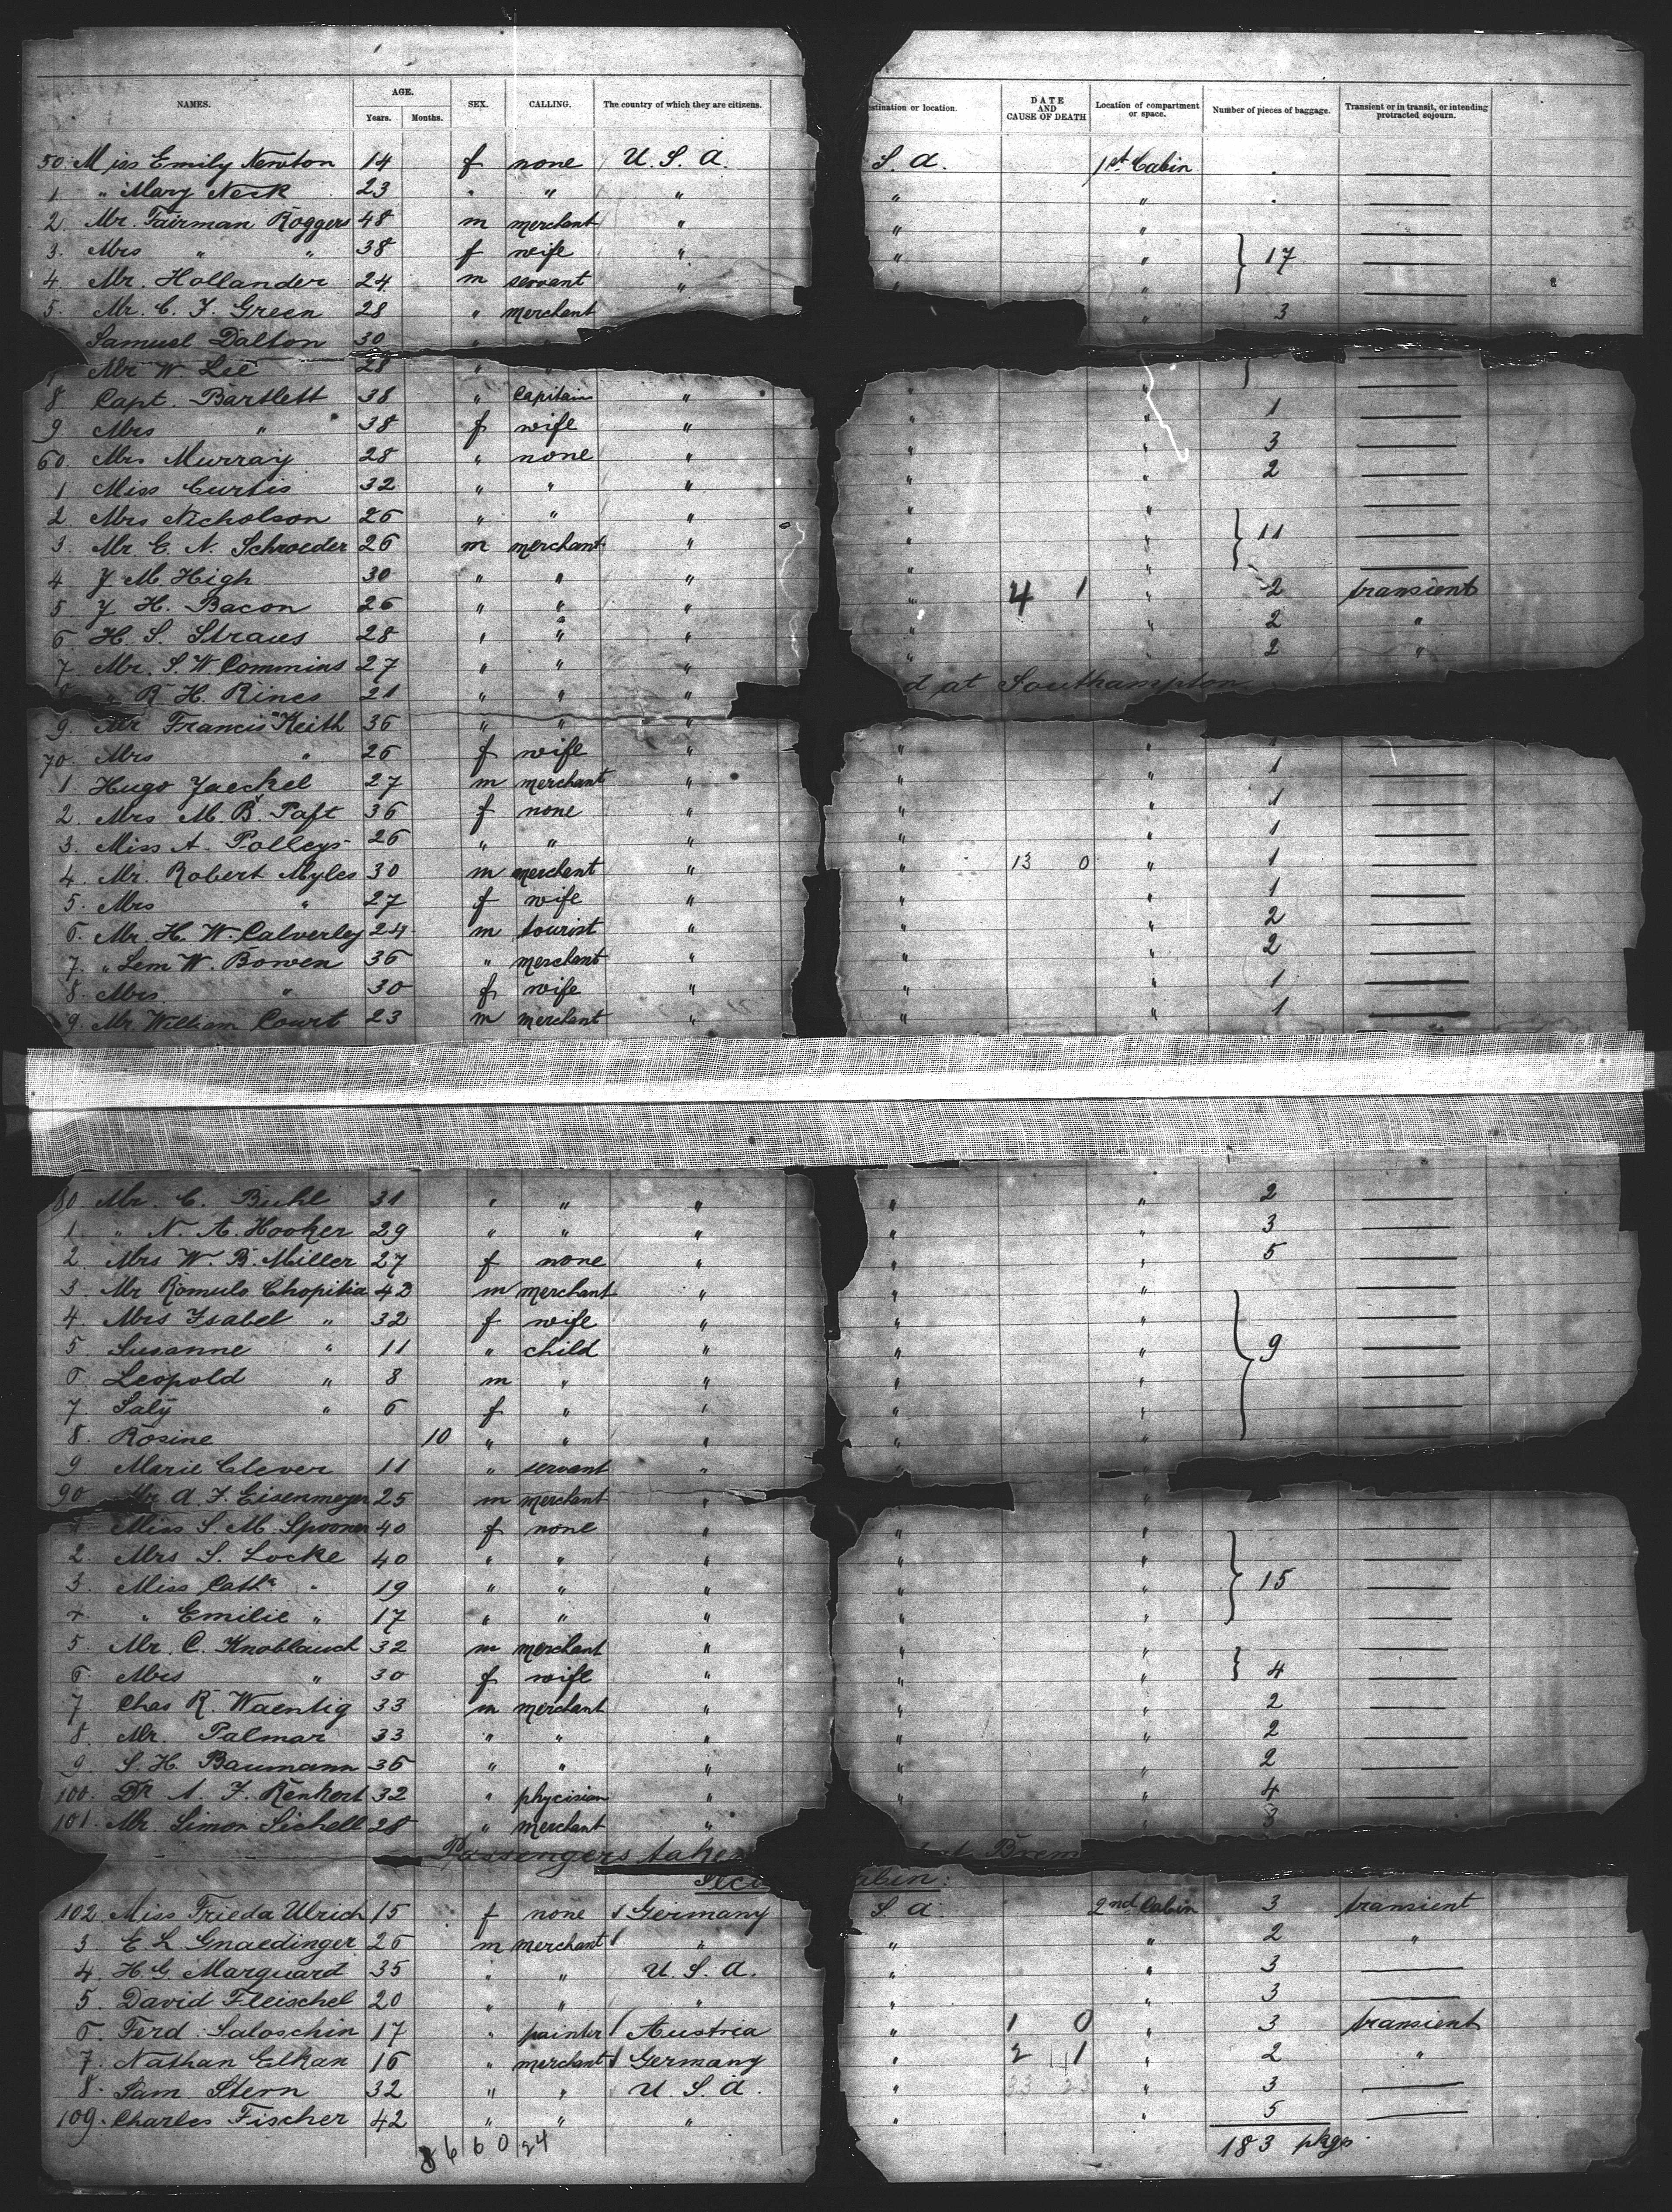 NAMES. AGE. SEX. CALLING. The country of which they are citizens. stination or location. DATE AND CAUSE OF DEATH Location of compartment or space. Number of pieces of baggage. Transient or in transit, or intending protracted sojourn.
Years. Months.
50. Miss Emily Newton 14 f none U. S. A. S. A. 1st Cabin
1. " Mary Neck 23 " " " " "
2. Mr. Fairman Roggers 48 m merchant " " "
3. Mrs " " 38 f wife " " " 17
4. Mr. Hollander 24 m servant " " "
5. Mr. C. F. Green 28 " merchant " 3
Samuel Dalton 30 "
Mr W. Lee 28 " "
8 Capt. Bartlett 38 " Capitain " " " 1
9 Mrs " 38 f wife " " " 3
60. Mrs Murray 28 " none " " " 2
1 Miss Curtis 32 " " " "
2. Mrs Nicholson 26 " " " " "
3. Mr. E. N. Schroeder 26 m merchant " " " 11
4 J M. High 30 " " " "
5 J H. Bacon 26 " " " " 4 1 " 2 transient
6 H. S. Straus 28 " " " " " 2 "
7 Mr. S. W. Commins 27 " " " " " 2 "
" R. H. Rines 21 " " " d at Southampton
9. Mr Francis Keith 36 " " "
70. Mrs " 26 f wife " " " 1
1 Hugo Jaeckel 27 m merchant " " " 1
2 Mrs M. B. Taft 36 f none " " " 1
3. Miss A. Polleys 26 " " " " " 1
4. Mr. Robert Myles 30 m merchant " " 13 0 " 1
5. Mrs " 27 f wife " " " 1
6. Mr. H. W. Calverley 24 m tourist " " " 2
7. " Lem W. Bowen 36 " merchant " " " 2
8. Mrs " 30 f wife " " " 1
9. Mr William Court 23 m merchant " " " 1
80 Mr. C. Buhl 31 " " " " " 2
1 " N. A. Hooker 29 " " " " " 3
2. Mrs W. B. Miller 27 f none " " " 5
3. Mr Romulo Chopitia 42 m merchant " " "
4. Mrs Isabel " 32 f wife " " "
5. Susanne " 11 " child " " " 9
6. Leopold " 8 m " " " "
7. Saly " 6 f " " " "
8. Rosine 10 " " " " "
9 Marie Clever 11 " servant " " "
90 Mr A. F. Eisenmeyer 25 m merchant " "
Miss S. M. Spooner 40 f none " " "
2. Mrs S. Locke 40 " " " " "
3. Miss Catha " 19 " " " " " 15
4. " Emilie " 17 " " " " "
5. Mr. C. Knoblauch 32 m merchant " " "
6. Mrs " 30 f wife " " " 4
7 Chas R. Waentig 33 m merchant " " " 2
8. Mr. Palmar 33 " " " " " 2
9 S. H. Baumann 36 " " " " " 2
100. Dr A. F. Renkort 32 " phycisian " " " 4
101. Mr. Simon Sichell 28 " merchant " " 3
Passengers taken at Brem
Seco abin:
102. Miss Frieda Ulrich 15 f none Germany S. A. 2nd Cabin 3 transient
3 E L Gnaedinger 26 m merchant " " " 2 "
4. H. G. Marquard 35 " " U. S. A. " " 3
5. David Fleischel 20 " " " " " 3
6. Ferd. Saloschin 17 " painter Austria " 1 0 " 3 transient
7. Nathan Elkan 16 " merchant Germany " 2 1 " 2 "
8. Sam Stern 32 " " U. S. A. " 33 23 " 3
109. Charles Fischer 42 " " " " " 5
8 6 6 0 24 183 pkgs.